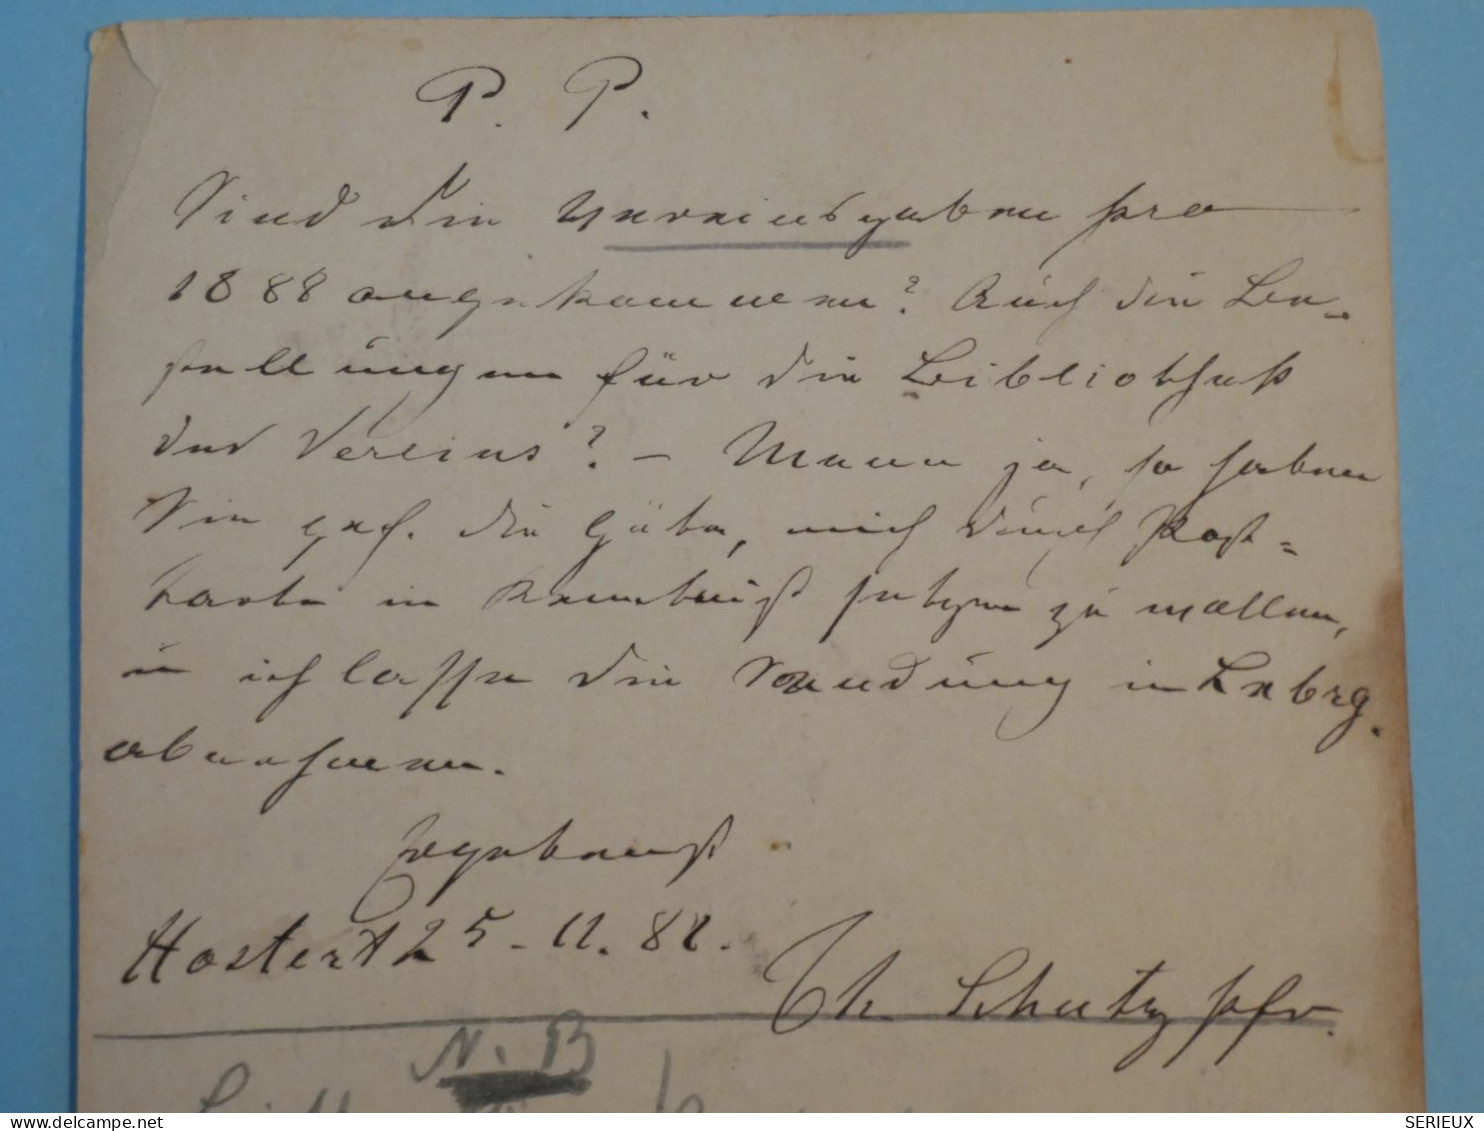 P. P.
Sind die Vereinsgaben pro
1888 angekommen? Auch die Be-
stellungen für die Bibliothek
des Vereins? – Wenn ja, so haben
Sie gef. die Güte, mich durch Post-
karte in Kenntniß setzen zu wollen,
u ich lasse die Sendung in Lxbrg.
abnehmen.
Ergebenst
Hostert 25-11.88.
Th Schutz Pfr.
N. B